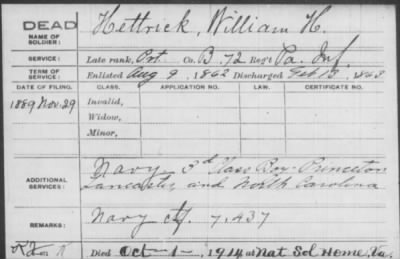 DEAD
NAME OF SOLDIER: Hettrick, William H.
SERVICE: Late rank, Pvt Co. B, 72 Reg't Pa. Inf.
TERM OF SERVICE: Enlisted Aug 9, 1862 Discharged Feb 13, 1863
DATE OF FILING. CLASS. APPLICATION NO. LAW. CERTIFICATE NO.
1889 Nov. 29 Invalid,
Widow,
Minor,
Navy 3d Class Boy Princeton
ADDITIONAL SERVICES: Lancaster and North Carolina
REMARKS: Navy ctf 7,437
Died Oct 1, 1914 at Nat Sol Home, Va.